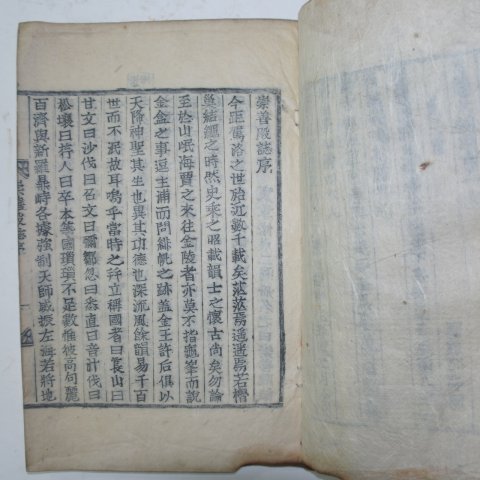 崇善殿誌序
今距駕洛之世殆近數千載矣茫茫焉遥遥焉若檜
巢結繩之時然史乘之昭載韻士之懷古尚矣勿論
至於山氓海賈之来往金陵者亦莫不指龜峯而說
金金之事逗主浦而問緋帆之跡盖金王許后俱以
天降神聖其生也異其功德也深流風餘韻易千百
世而不泯故耳嗚乎當時之并立稱國者曰萇山曰
甘文曰沙伐曰召文曰彌鄒忽曰悉直曰音汁伐曰
松壤曰荇人曰卒本等國瑣瑣不足數惟彼高句麗
百濟與新羅鼎峙各據強制天師威振左海若將地
崇善殿誌序
一